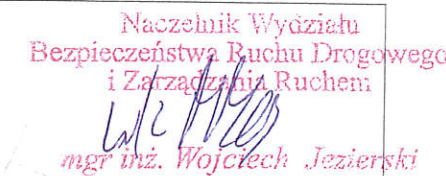 Naczelnik Wydziału
Bezpieczeństwa Ruchu Drogowego
i Zarządzania Ruchem
mgr inż. Wojciech Jezierski